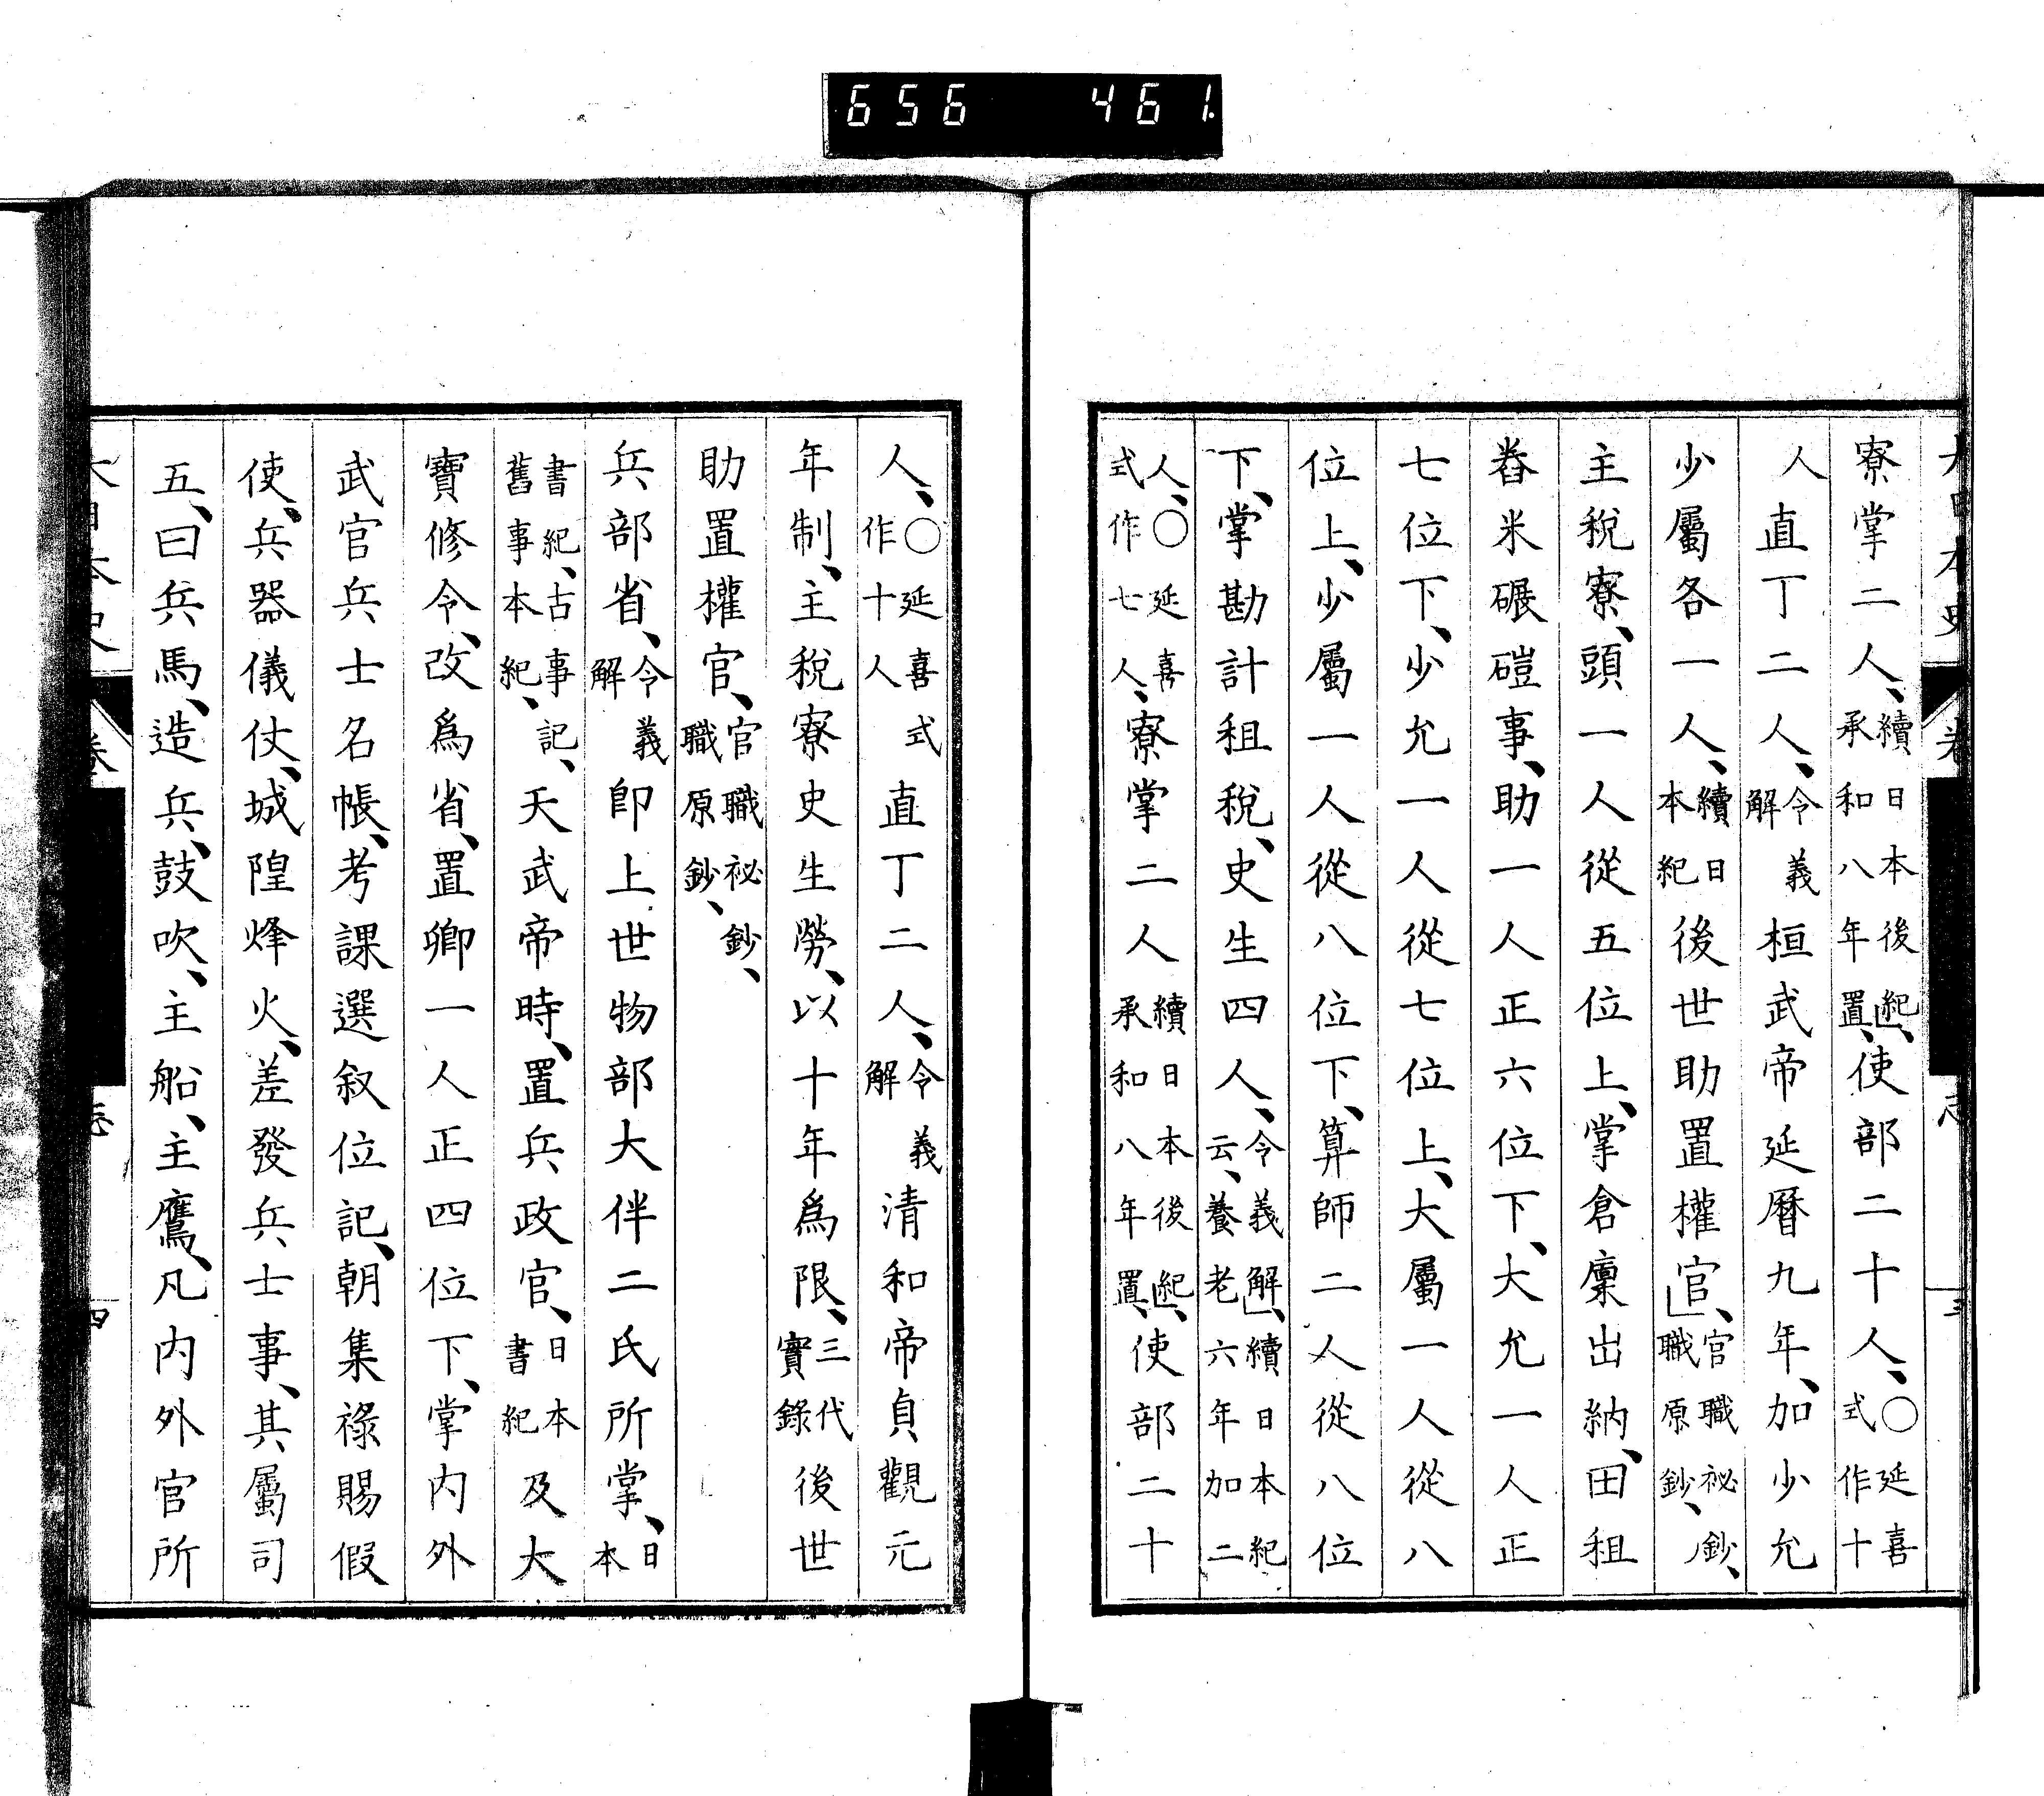 656 461
寮掌二人、續日本後紀、承和八年置、使部二十人、○延喜式作十
人直丁二人、令義解桓武帝延曆九年、加少允
少屬各一人、續日本紀後世助置權官、官職祕鈔、職原鈔、
主稅寮、頭一人從五位上、掌倉廩出納、田租
舂米碾磑事、助一人正六位下、大允一人正
七位下、少允一人從七位上、大屬一人從八
位上、少屬一人從八位下、算師二人從八位
下、掌勘計租稅、史生四人、令義解、續日本紀云、養老六年加二
人、○延喜式作七人、寮掌二人續日本後紀、承和八年置、使部二十
人、○延喜式作十人直丁二人、令義解清和帝貞觀元
年制、主稅寮史生勞、以十年爲限、三代實錄後世
助置權官、官職祕鈔、職原鈔、
兵部省、令義解卽上世物部大伴二氏所掌、日本
書紀、古事記、舊事本紀、天武帝時、置兵政官、日本書紀及大
寶修令、改爲省、置卿一人正四位下、掌內外
武官兵士名帳、考課選叙位記、朝集祿賜假
使、兵器儀仗、城隍烽火、差發兵士事、其屬司
五、曰兵馬、造兵、鼓吹、主船、主鷹、凡內外官所